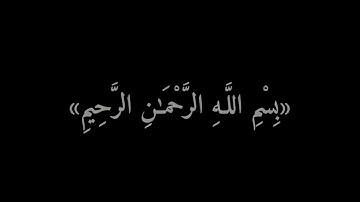 «بِسْمِ اللَّهِ الرَّحْمَـٰنِ الرَّحِيمِ»